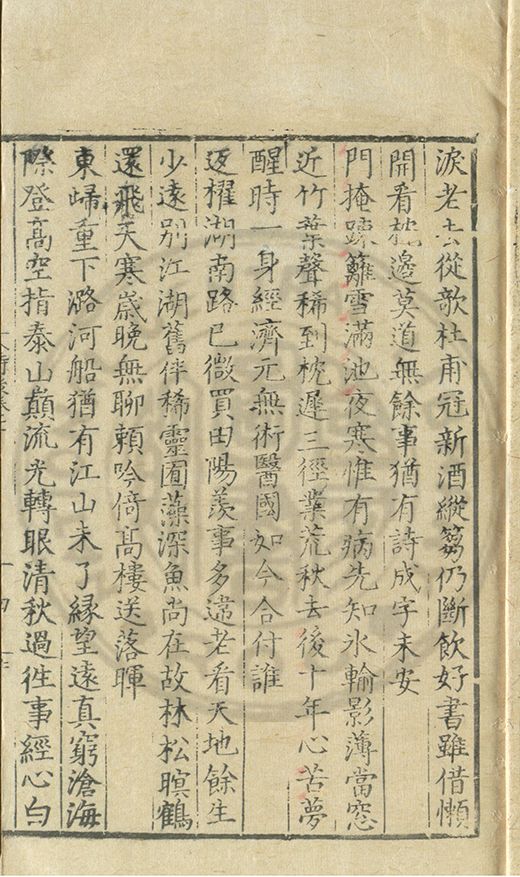 淚老去從歌杜甫冠新酒縱篘仍斷飲好書雖借懶
開看枕邊莫道無餘事猶有詩成字未安
門掩踈籬雪滿池夜寒惟有病先知氷輪影薄當窓
近竹葉聲稀到枕遲三徑業荒秋去後十年心苦夢
醒時一身經濟元無術醫國如今合付誰
返櫂湖南路已微買田陽羨事多違老看天地餘生
少遠别江湖舊伴稀靈囿藻深魚尚在故林松暝鶴
還飛天寒歲晚無聊賴吟倚髙樓送落暉
東歸重下潞河船猶有江山未了縁望遠真窮滄海
際登髙空指泰山巔流光轉眼清秋過徃事經心白